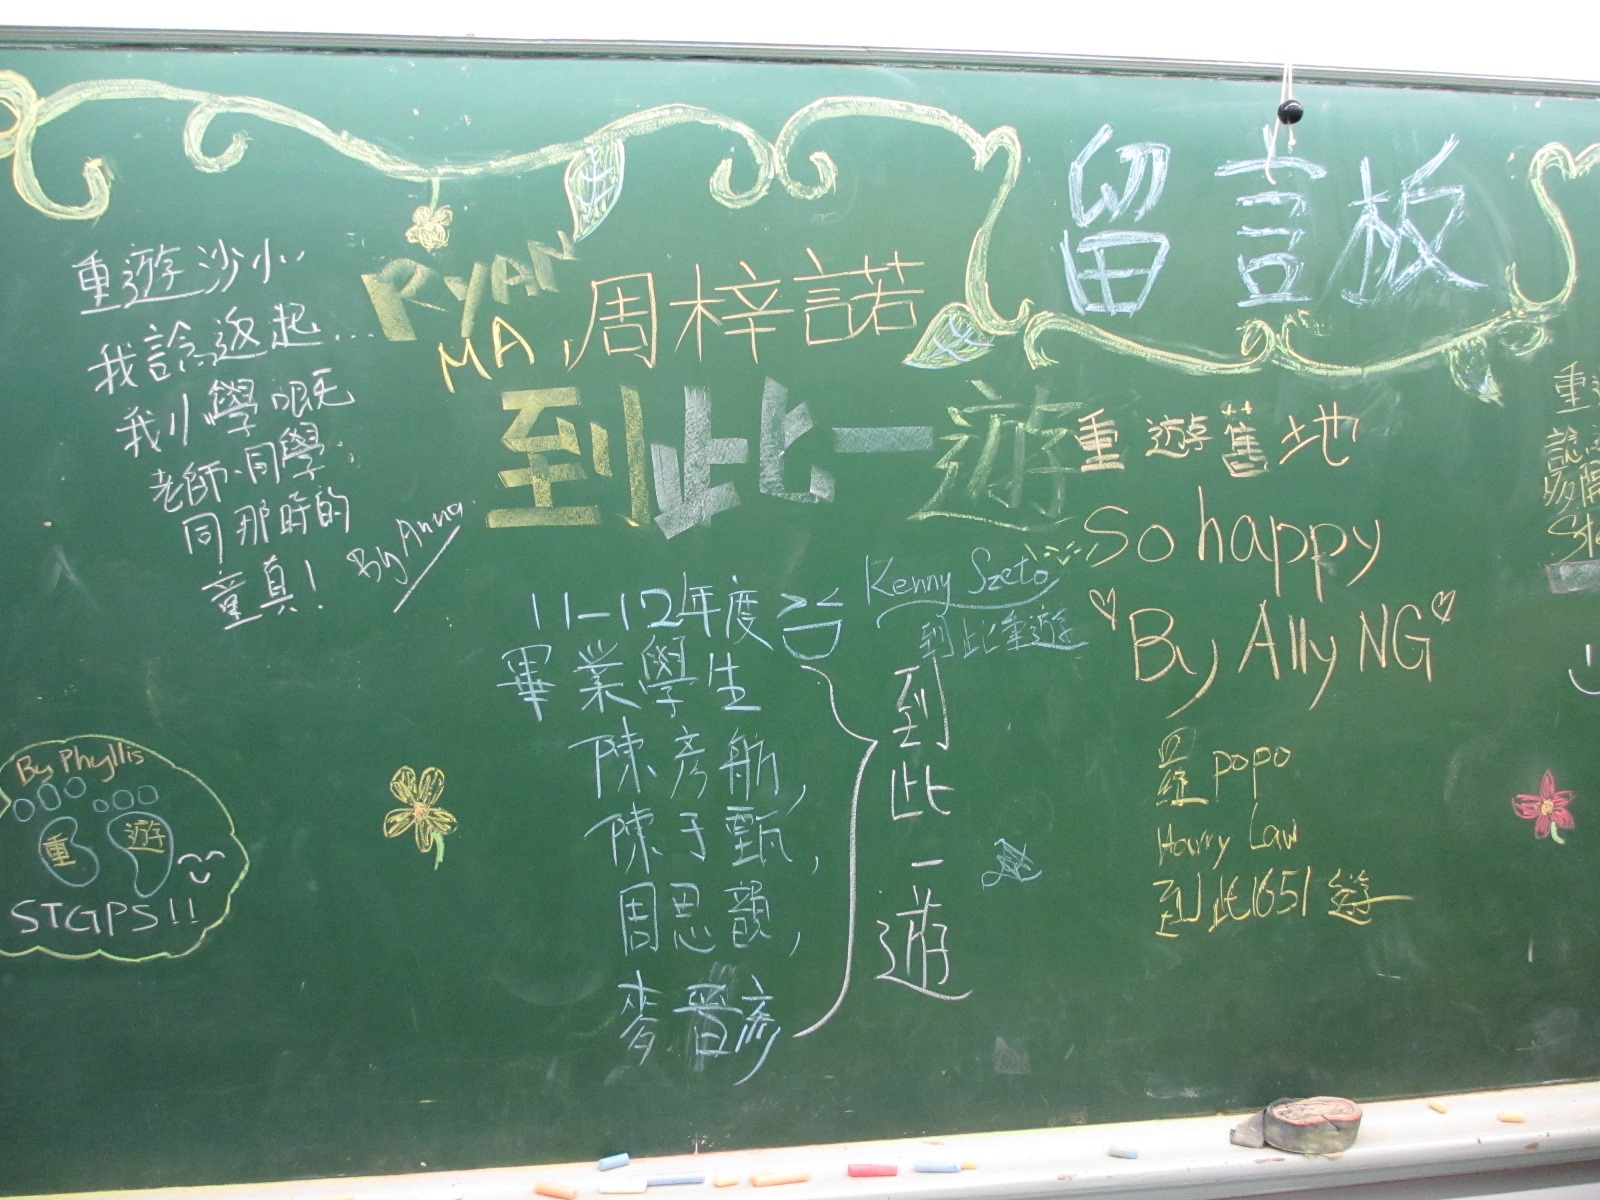 留言板
重遊沙小
我諗返起...
我小學嘅
老師、同學
同那時的
童真!
By Anna
RYAN
MA,周梓諾
到此一遊
重遊舊地
So happy
By Ally NG
Kenny Szeto
到此重遊
11-12年度
畢業學生
陳彥舫,
陳予甄,
周思韻,
麥晉彥
到此一遊
羅popo
Harry Law
到此1651遊
By Phyllis
重遊
STGPS!!
重